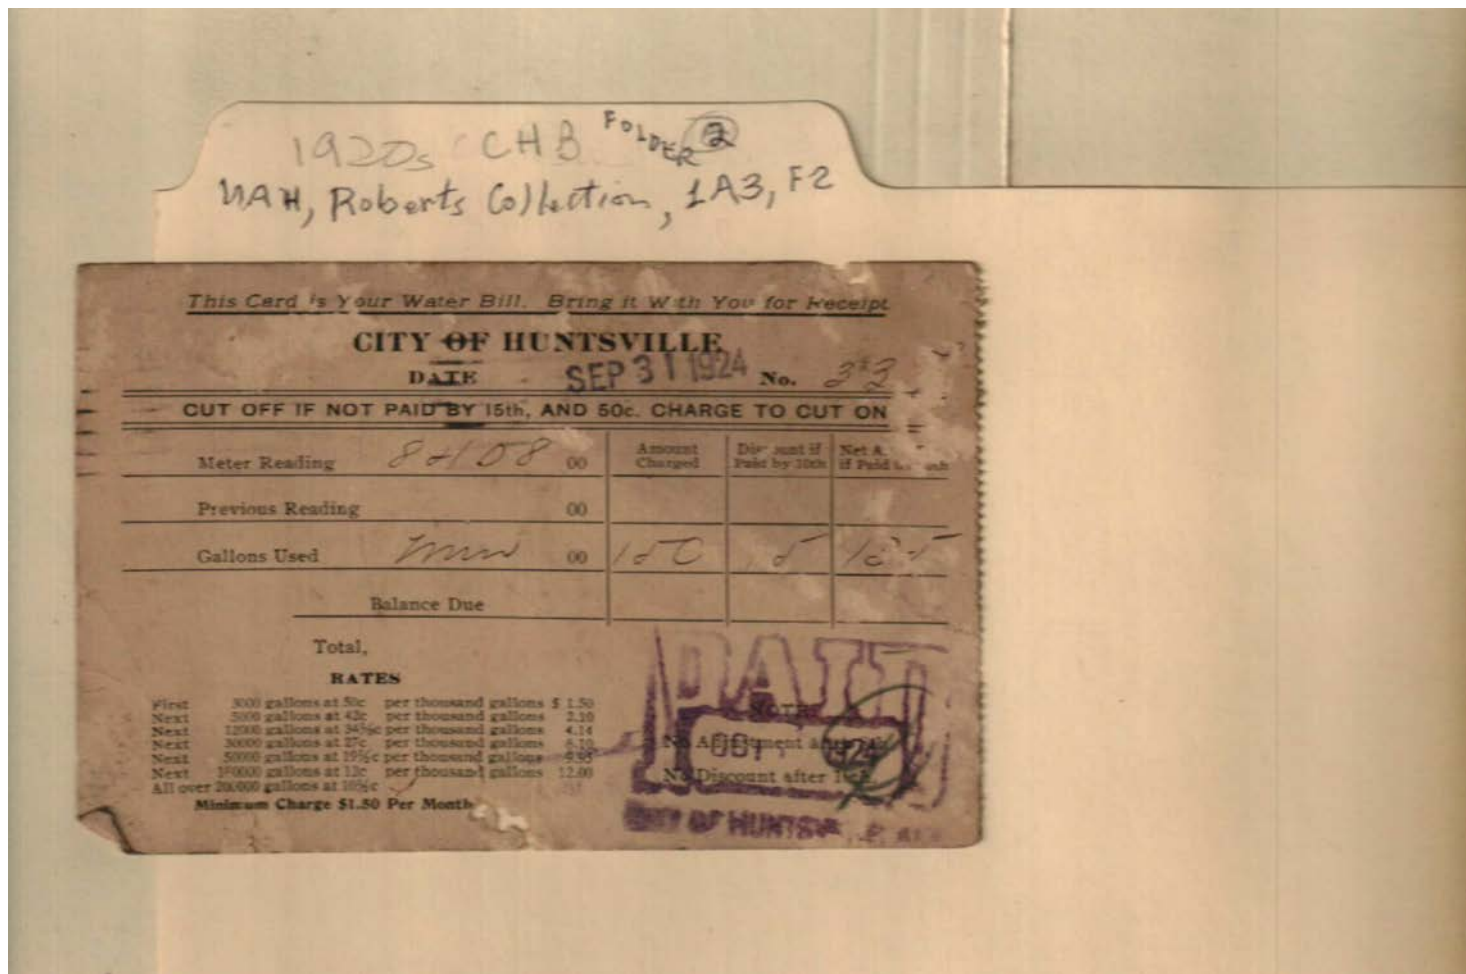 1920s CHB FOLDER 2
UAH, Roberts Collection, 1A3, F2
This Card is Your Water Bill. Bring it With You for Receipt
CITY OF HUNTSVILLE
DATE SEP 31 1924 No.
CUT OFF IF NOT PAID BY 15th, AND 50c. CHARGE TO CUT ON
Meter Reading 00 Amount Charged Discount if Paid by 10th Net if Paid
Previous Reading 00
Gallons Used min 00 150 15 135
Balance Due
Total,
RATES
First 3000 gallons at 50c per thousand gallons $ 1.50
Next 5000 gallons at 42c per thousand gallons 2.10
Next 12000 gallons at 34½c per thousand gallons 4.14
Next 30000 gallons at 27c per thousand gallons 8.10
Next 50000 gallons at 19½c per thousand gallons
Next 100000 gallons at 12c per thousand gallons 12.00
All over 200000 gallons at 10½c
Minimum Charge $1.50 Per Month
PAID
NOTE
No Adjustment after
OCT 1924
No Discount after 10th.
CITY OF HUNTSV